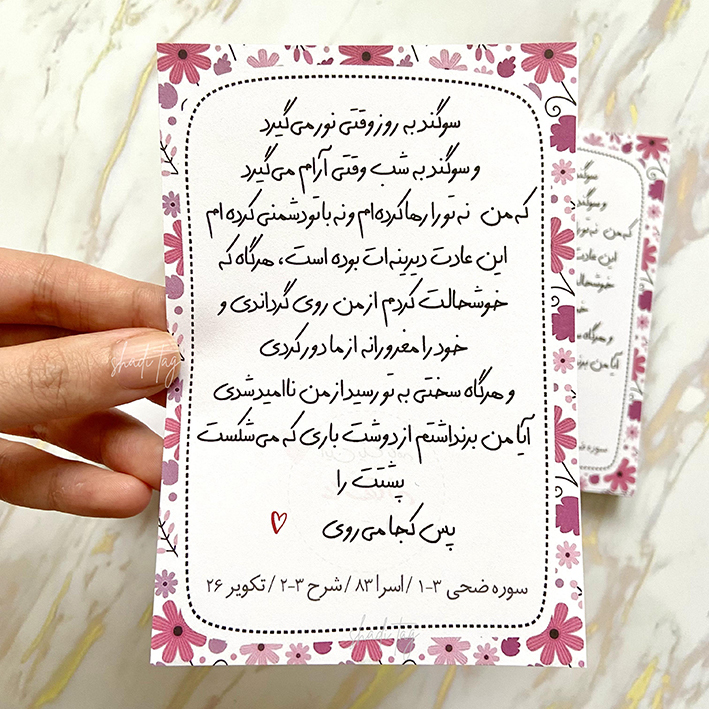 سوگند به روز وقتی نور می‌گیرد
و سوگند به شب وقتی آرام می‌گیرد
که من نه تو را رها کرده‌ام و نه با تو دشمنی کرده‌ام
این عادت دیرینه‌ات بوده است، هرگاه که
خوشحالت کردم از من روی گرداندی و
خود را مغرورانه از ما دور کردی
و هرگاه سختی به تو رسید از من ناامید شدی
آیا من برنداشتم از دوشت باری که می‌شکست
پشتت را
پس کجا می‌روی
سوره ضحی ۳-۱ / اسرا ۸۳ / شرح ۳-۲ / تکویر ۲۶
shadi tag
shadi tag
سوگند
و سوگند
که من نه تو را
این عادت
خوشحالت
خود
و هرگاه
آیا من برند
سوره ض